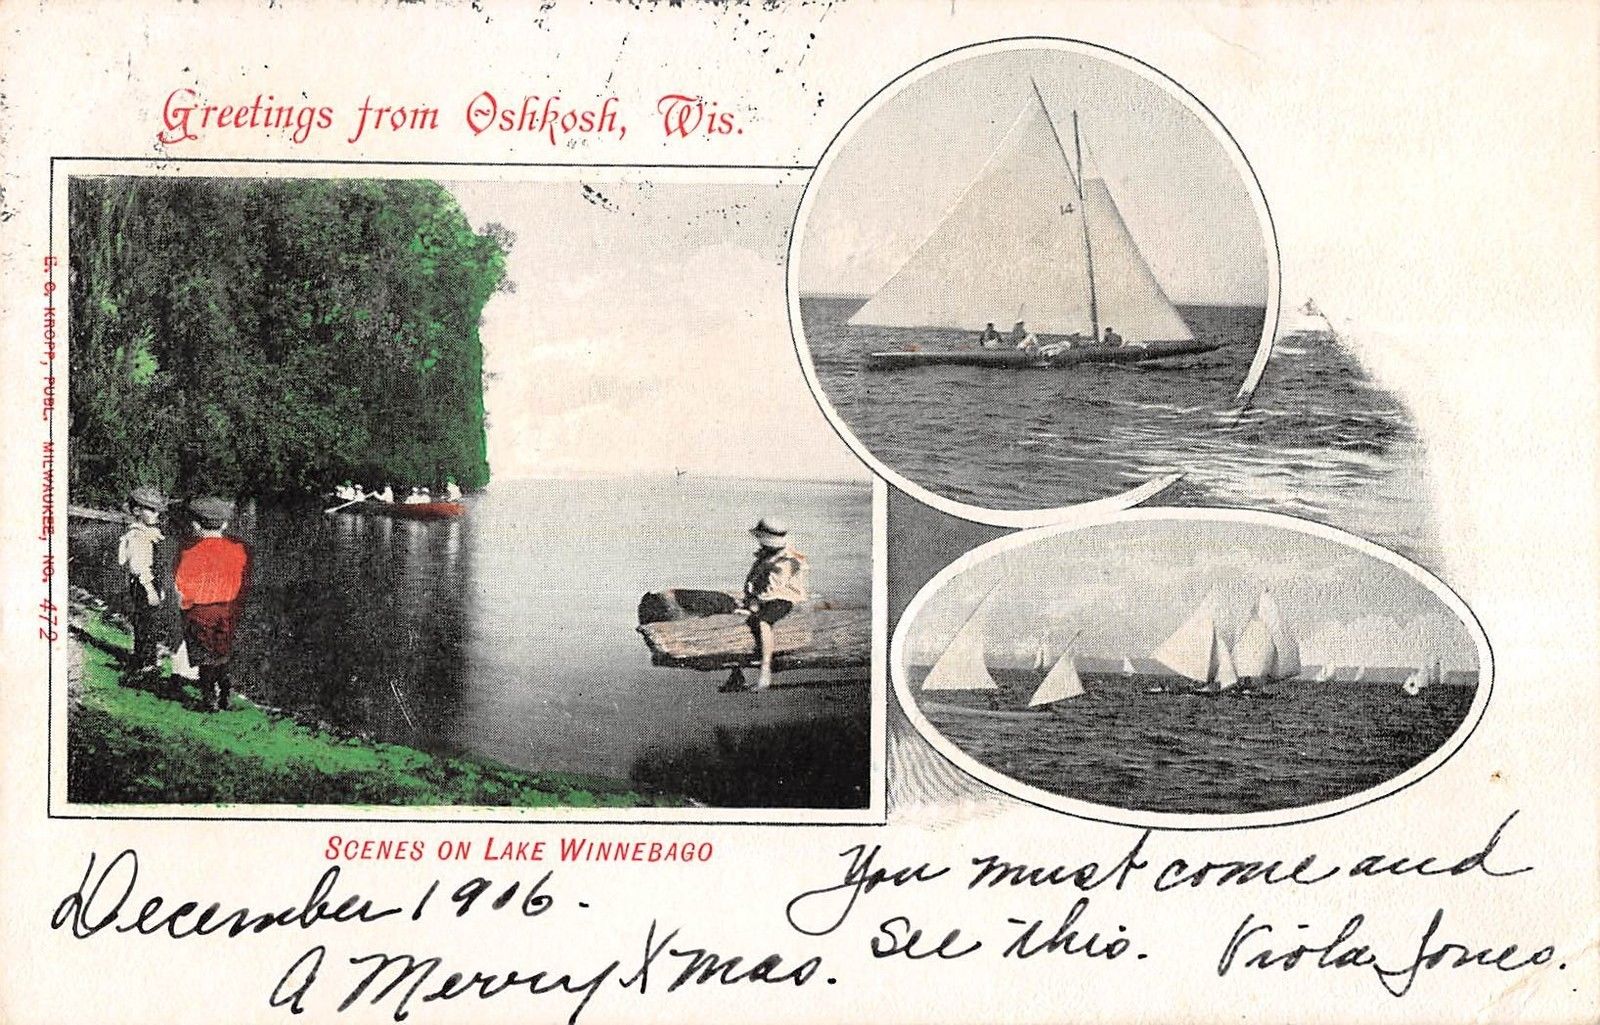 Greetings from Oshkosh, Wis.
E. C. KROPP, PUBL. MILWAUKEE, NO. 472
14
SCENES ON LAKE WINNEBAGO
December 1906.
A Merry Xmas.
You must come and
see this. Viola Jones.